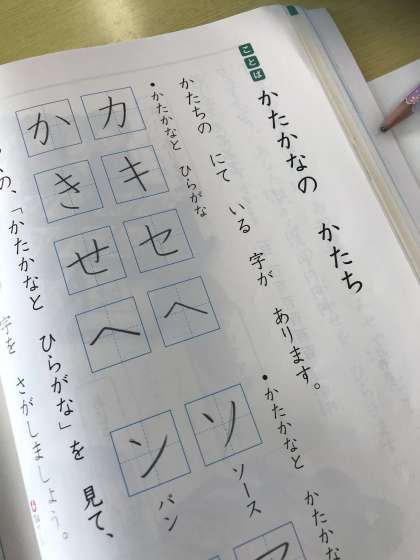 ことば
かたかなの　かたち
かたちの　にて　いる　字が　あります。
・かたかなと　ひらがな
カ　キ　セ　ヘ
か　き　せ　へ
・かたかなと　かたかな
ソ　ソース
ン　パン
「かたかなと　ひらがな」を　見て、
字を　さがしましょう。